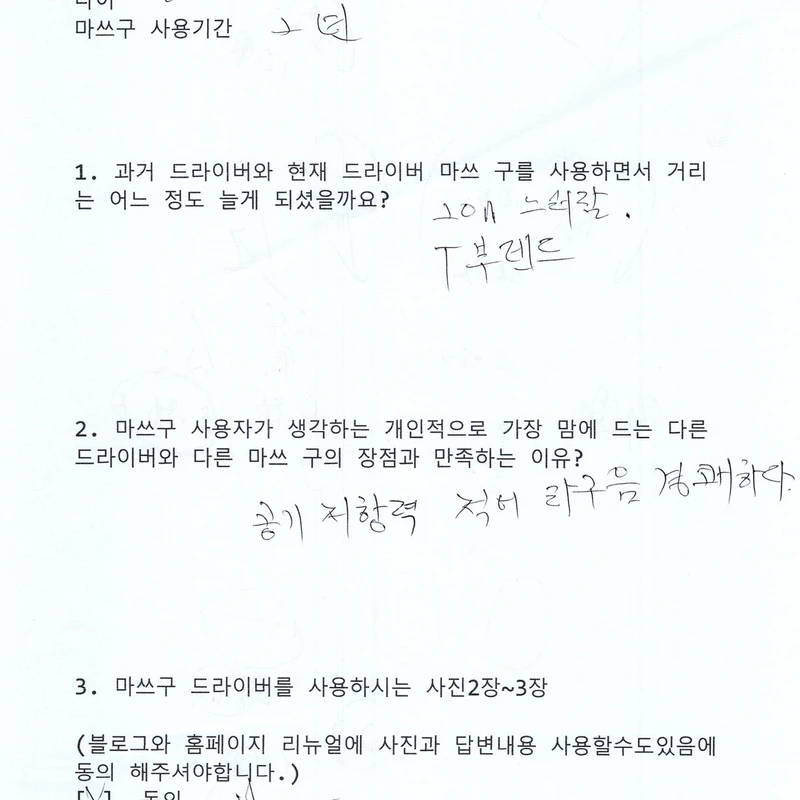 마쓰구 사용기간 2 년
1. 과거 드라이버와 현재 드라이버 마쓰 구를 사용하면서 거리
는 어느 정도 늘게 되셨을까요?
20m 느러람.
T 부렌드
2. 마쓰구 사용자가 생각하는 개인적으로 가장 맘에 드는 다른
드라이버와 다른 마쓰 구의 장점과 만족하는 이유?
공기 저항력 적어 타구음 경쾌하다.
3. 마쓰구 드라이버를 사용하시는 사진2장~3장
(블로그와 홈페이지 리뉴얼에 사진과 답변내용 사용할수도있음에
동의 해주셔야합니다.)
[V] 동의